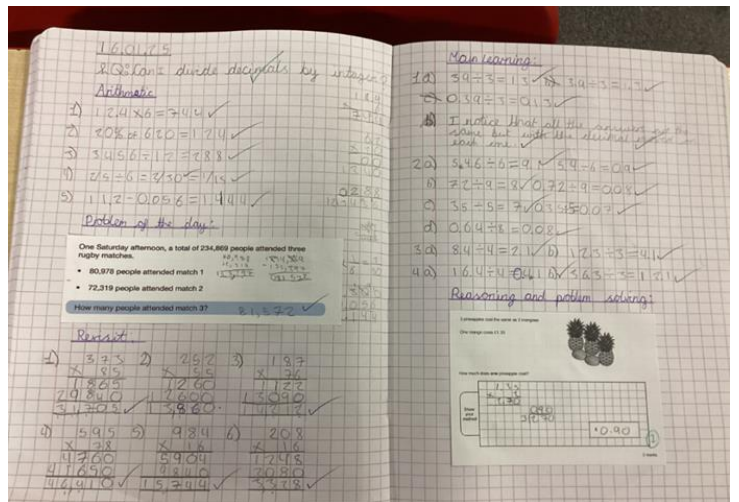 16.01.25
LQ: Can I divide decimals by integers?
Arithmetic
1) 124 x 6 = 744
2) 20% of 620 = 124
3) 3456 ÷ 12 = 288
4) 2/5 ÷ 6 = 2/30 = 1/15
Problem of the day:
One Saturday afternoon, a total of 234,869 people attended three
rugby matches.
• 80,978 people attended match 1
• 72,319 people attended match 2
How many people attended match 3? 81,572
Revisit
1) 373
x 85
1865
29840
31705
2) 252
x 55
1260
12600
13,860
3) 187
x 76
1122
13090
14212
4) 595
x 78
4760
41650
46410
5) 984
x 16
5904
9840
15744
6) 208
x 16
1248
2080
3328
Main learning:
1a) 39 ÷ 3 = 13
c) 0.39 ÷ 3 = 0.13
I notice that all the answers are the
same but with the decimal
each one.
b) 72 ÷ 9 = 8 0.72 ÷ 9 = 0.08
c) 35 ÷ 5 = 7
d) 0.64 ÷ 8 = 0.08
3a) 8.4 ÷ 4 = 2.1 b) 12.3 ÷ 3 = 4.1
4a) 16.4 ÷ 4 b) 3.63 ÷ 3 = 1.21
Reasoning and problem solving:
3 pineapples cost the same as 2 mangoes.
One mango costs £1.35
How much does one pineapple cost?
Show
your
method
0.90
2 marks